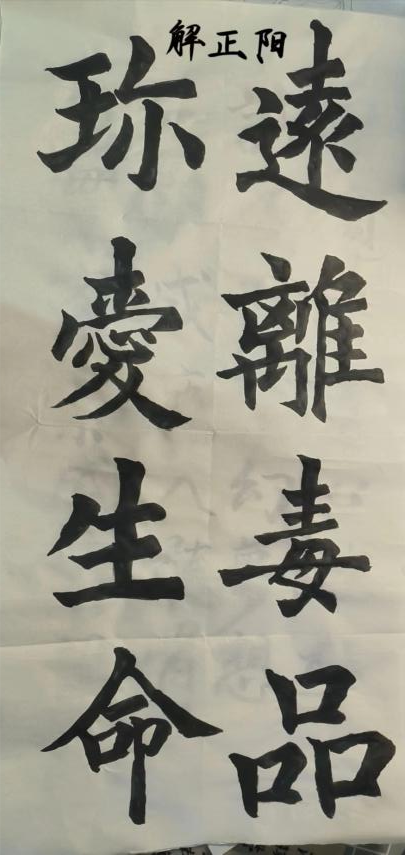 解正阳
遠離毒品
珎愛生命